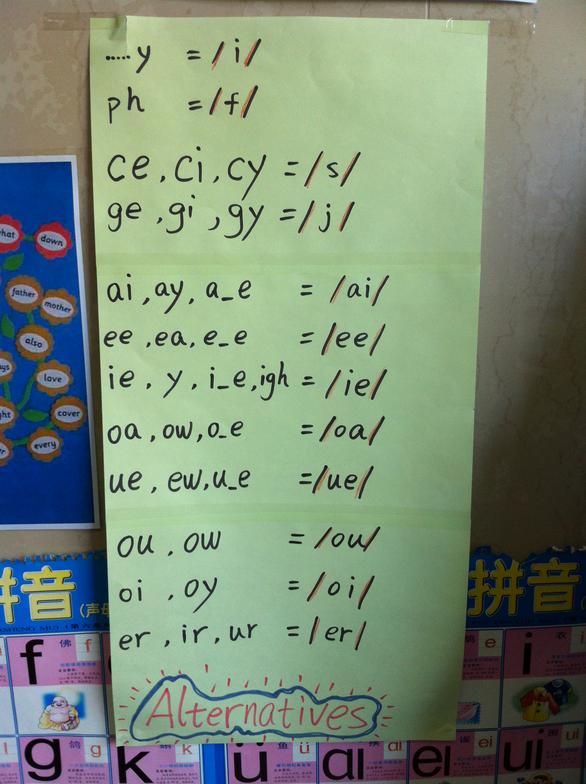 .....y = /i/
ph = /f/
ce, ci, cy = /s/
ge, gi, gy = /j/
ai, ay, a_e = /ai/
ee, ea, e_e = /ee/
ie, y, i_e, igh = /ie/
oa, ow, o_e = /oa/
ue, ew, u_e = /ue/
ou, ow = /ou/
oi, oy = /oi/
er, ir, ur = /er/
Alternatives
down
father
mother
also
love
cover
every
拼音
拼音
f 佛 f
ei i 衣
g 哥 g k ü 鱼 ü ɑi ei ui